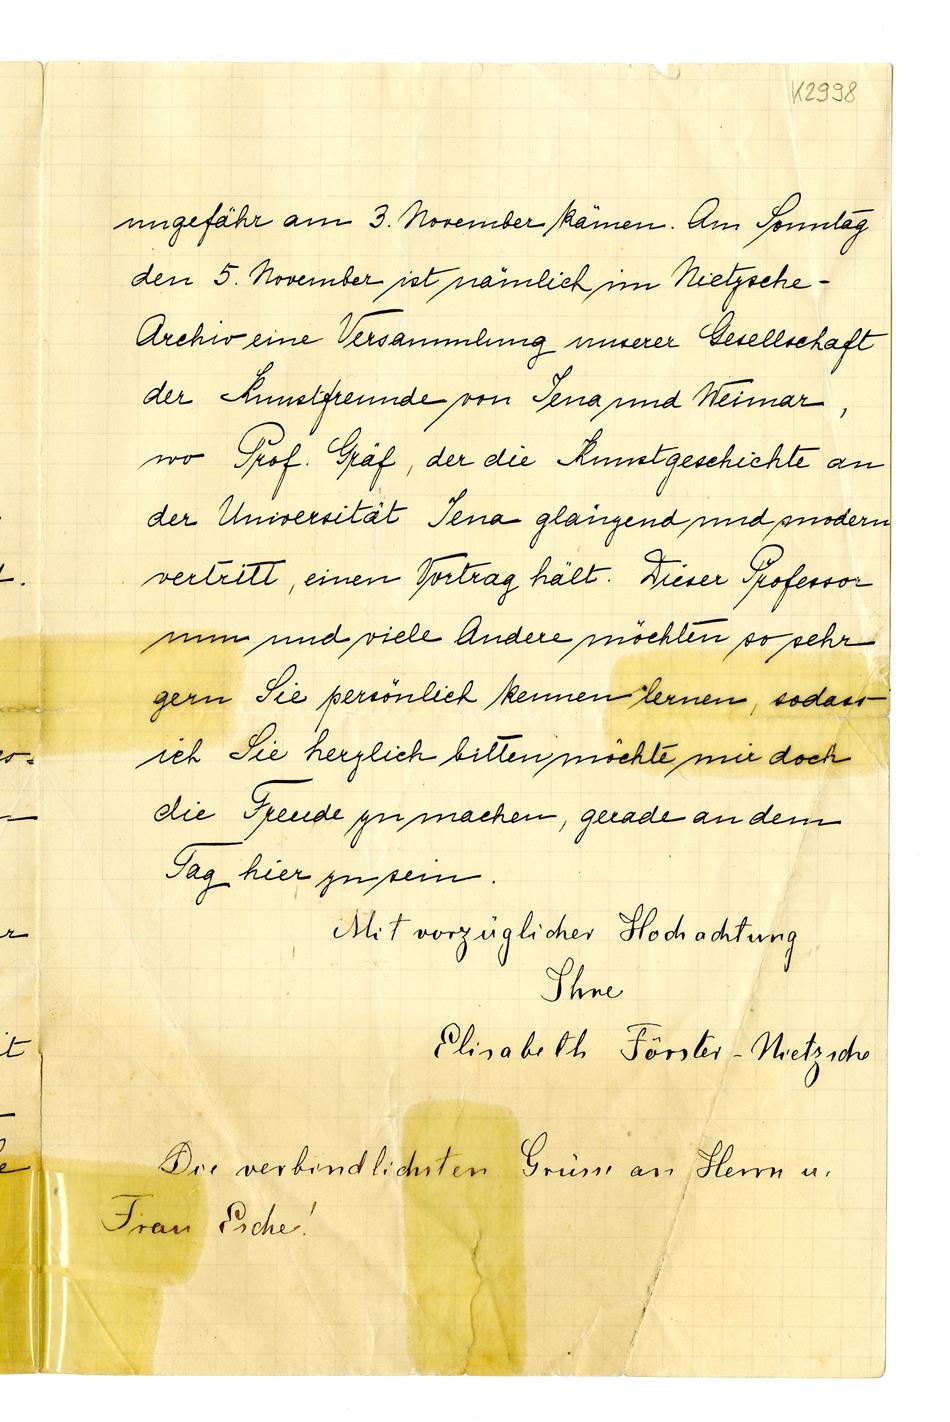 K2998
ungefähr am 3. November kämen. Am Sonntag
den 5. November ist nämlich im Nietzsche-
Archiv eine Versammlung unserer Gesellschaft
der Kunstfreunde von Jena und Weimar,
wo Prof. Gräf, der die Kunstgeschichte an
der Universität Jena glänzend und modern
vertritt, einen Vortrag hält. Dieser Professor
nun und viele Andere möchten so sehr
gern Sie persönlich kennen lernen, sodass
ich Sie herzlich bitten möchte mir doch
die Freude zu machen, gerade an dem
Tag hier zu sein.
Mit vorzüglicher Hochachtung
Ihre
Elisabeth Förster-Nietzsche
Die verbindlichsten Grüsse an Herrn u.
Frau Esche!